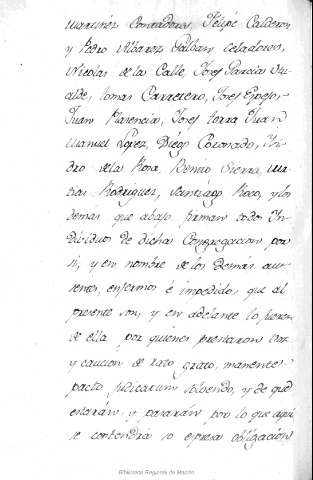 Martinez Contadores, Felipe Calderon,
y Pedro Albarez Galban Celadores,
Nicolas de la Calle, Josef Garcia
alde, Tomas Carretero, Josef Espejo,
Juan Plasencia, Josef Torra Juan
Manuel Lopez, Diego Coronado, Isi-
dro de la Rosa, Benito Sierra, Ma-
thas Rodriguez, Santiago Roco, y los
demas que abajo firman todos In-
dividuos de dicha Congregacion por
si, y en nombre de los demas au-
sentes, enfermos é impedidos, que al
presente son, y en adelante lo fueren
de ella por quienes prestaron voz
y caucion de rato grato, manente
pacto judicatum solvendo, y de que
estarán, y pasarán por lo que aqui
se contendrá so expresa obligacion
Biblioteca Regional de Madrid